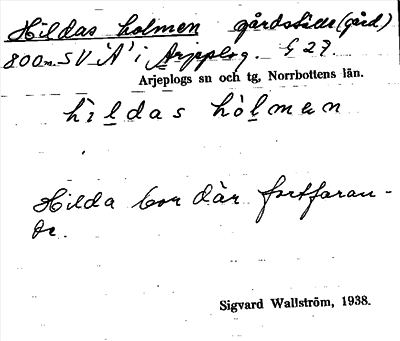 Hildas holmen gårdställe (gård)
800 m SV "A" i Arjeplog. § 27.
Arjeplogs sn och tg, Norrbottens län.
hìldas hòlmen
Hilda bor där fortfaran-
de.
Sigvard Wallström, 1938.